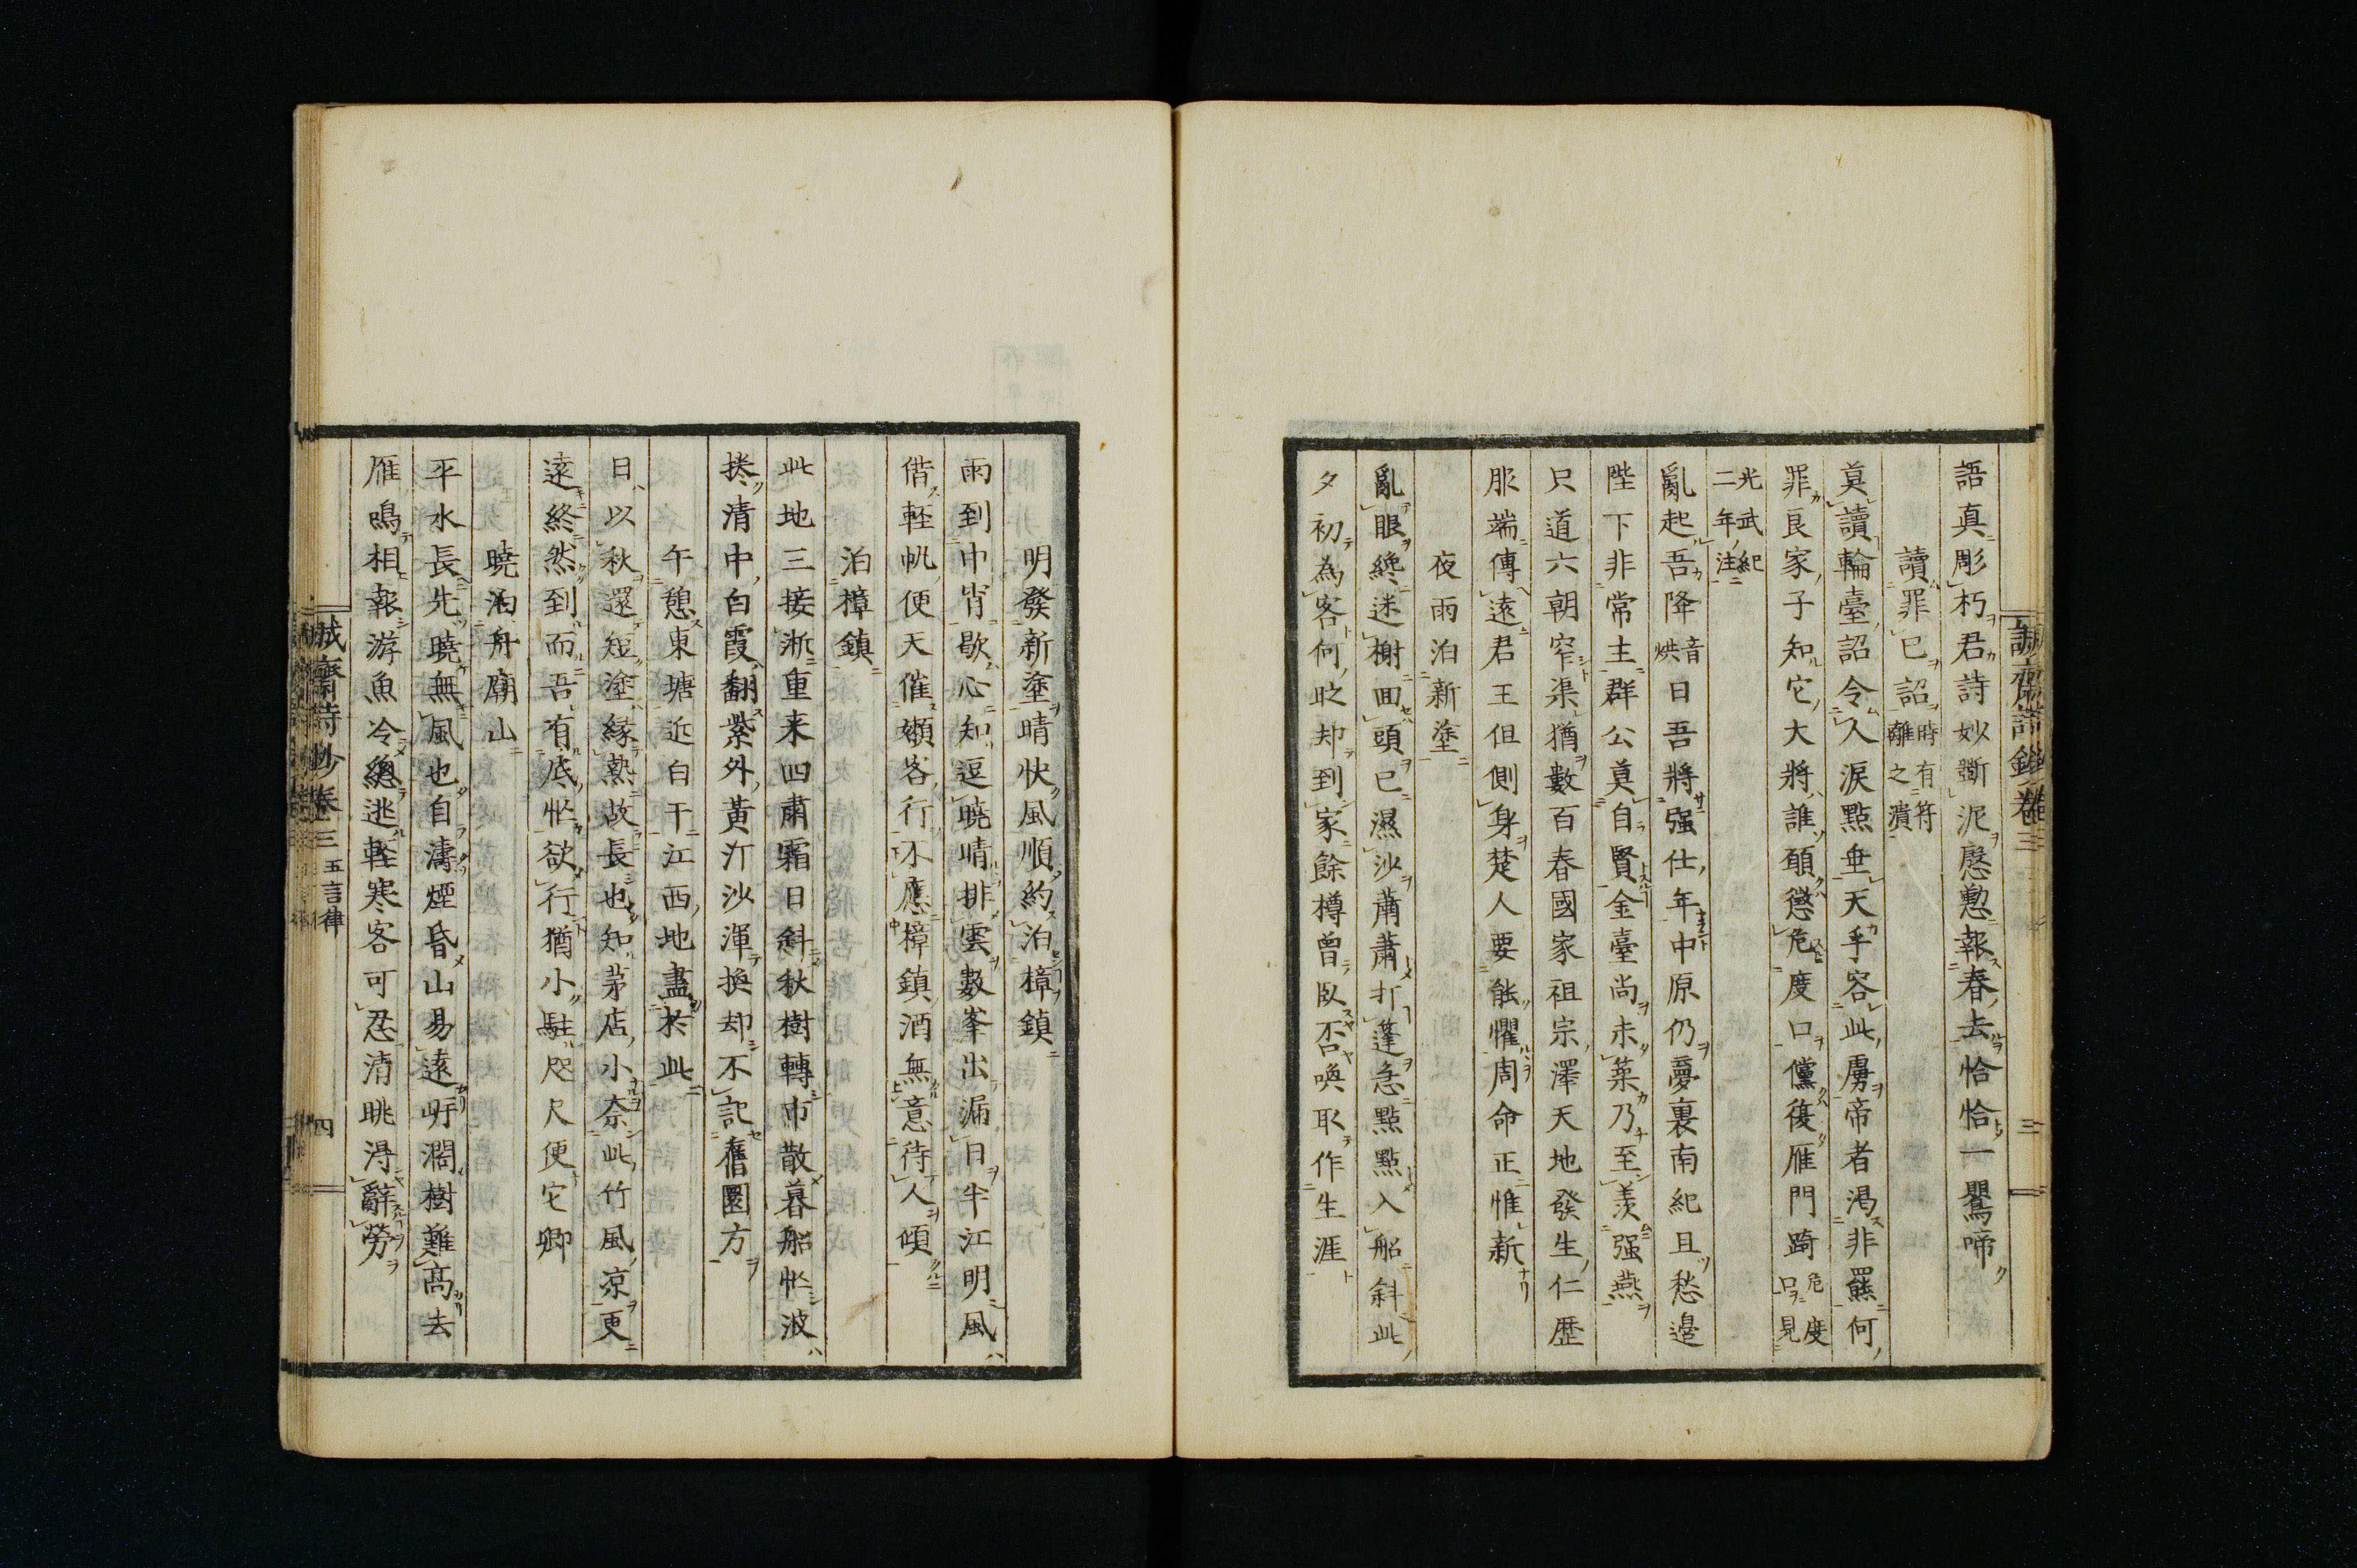 語真彫朽君詩妙斵泥慇懃報春去恰恰一鸎啼
讀罪已詔時有符離之潰
莫讀輪臺詔令人淚點垂天乎容此虜帝者渇非羆何
罪良家子知它大將誰頋懲危度口儻復雁門踦危度口見
光武紀二年注
亂起吾降音烘日吾將强仕年中原仍夢裏南紀且愁邉
陛下非常主群公莫自賢金臺尚未築乃至羡强燕
只道六朝窄渠猶數百春國家祖宗澤天地發生仁歴
服端傳遠君王但側身楚人要能懼周命正惟新
夜雨泊新塗
亂眼纔迷樹回頭已濕沙蕭蕭打蓬急點點入船斜此
夕初為客何时却到家餘樽曾臥否喚取作生涯
明發新塗晴快風順約泊樟鎮
雨到中宵歇心知逗曉晴排雲數峯出漏日半江明風
借軽帆便天催嬾客行不應樟鎮酒無意待人傾
泊樟鎮
此地三接淅重来四肅霜日斜秋樹轉市散暮船忙波
捲清中白霞翻紫外黄汀沙渾換却不記舊圜方
午憩東塘近白干江西地盡於此
日以秋還短塗縁熱故長也知茅店小奈此竹風凉更
遠終然到而吾有底忙欲行猶小駐咫尺便它卿
曉泊舟廟山
平水長先曉無風也自濤煙昏山易遠岸濶樹難髙去
雁鳴相報游魚冷總逃軽寒客可忍清眺淂辭勞
誠齋詩鈔卷三
三
誠齋詩抄卷三 五言律
四